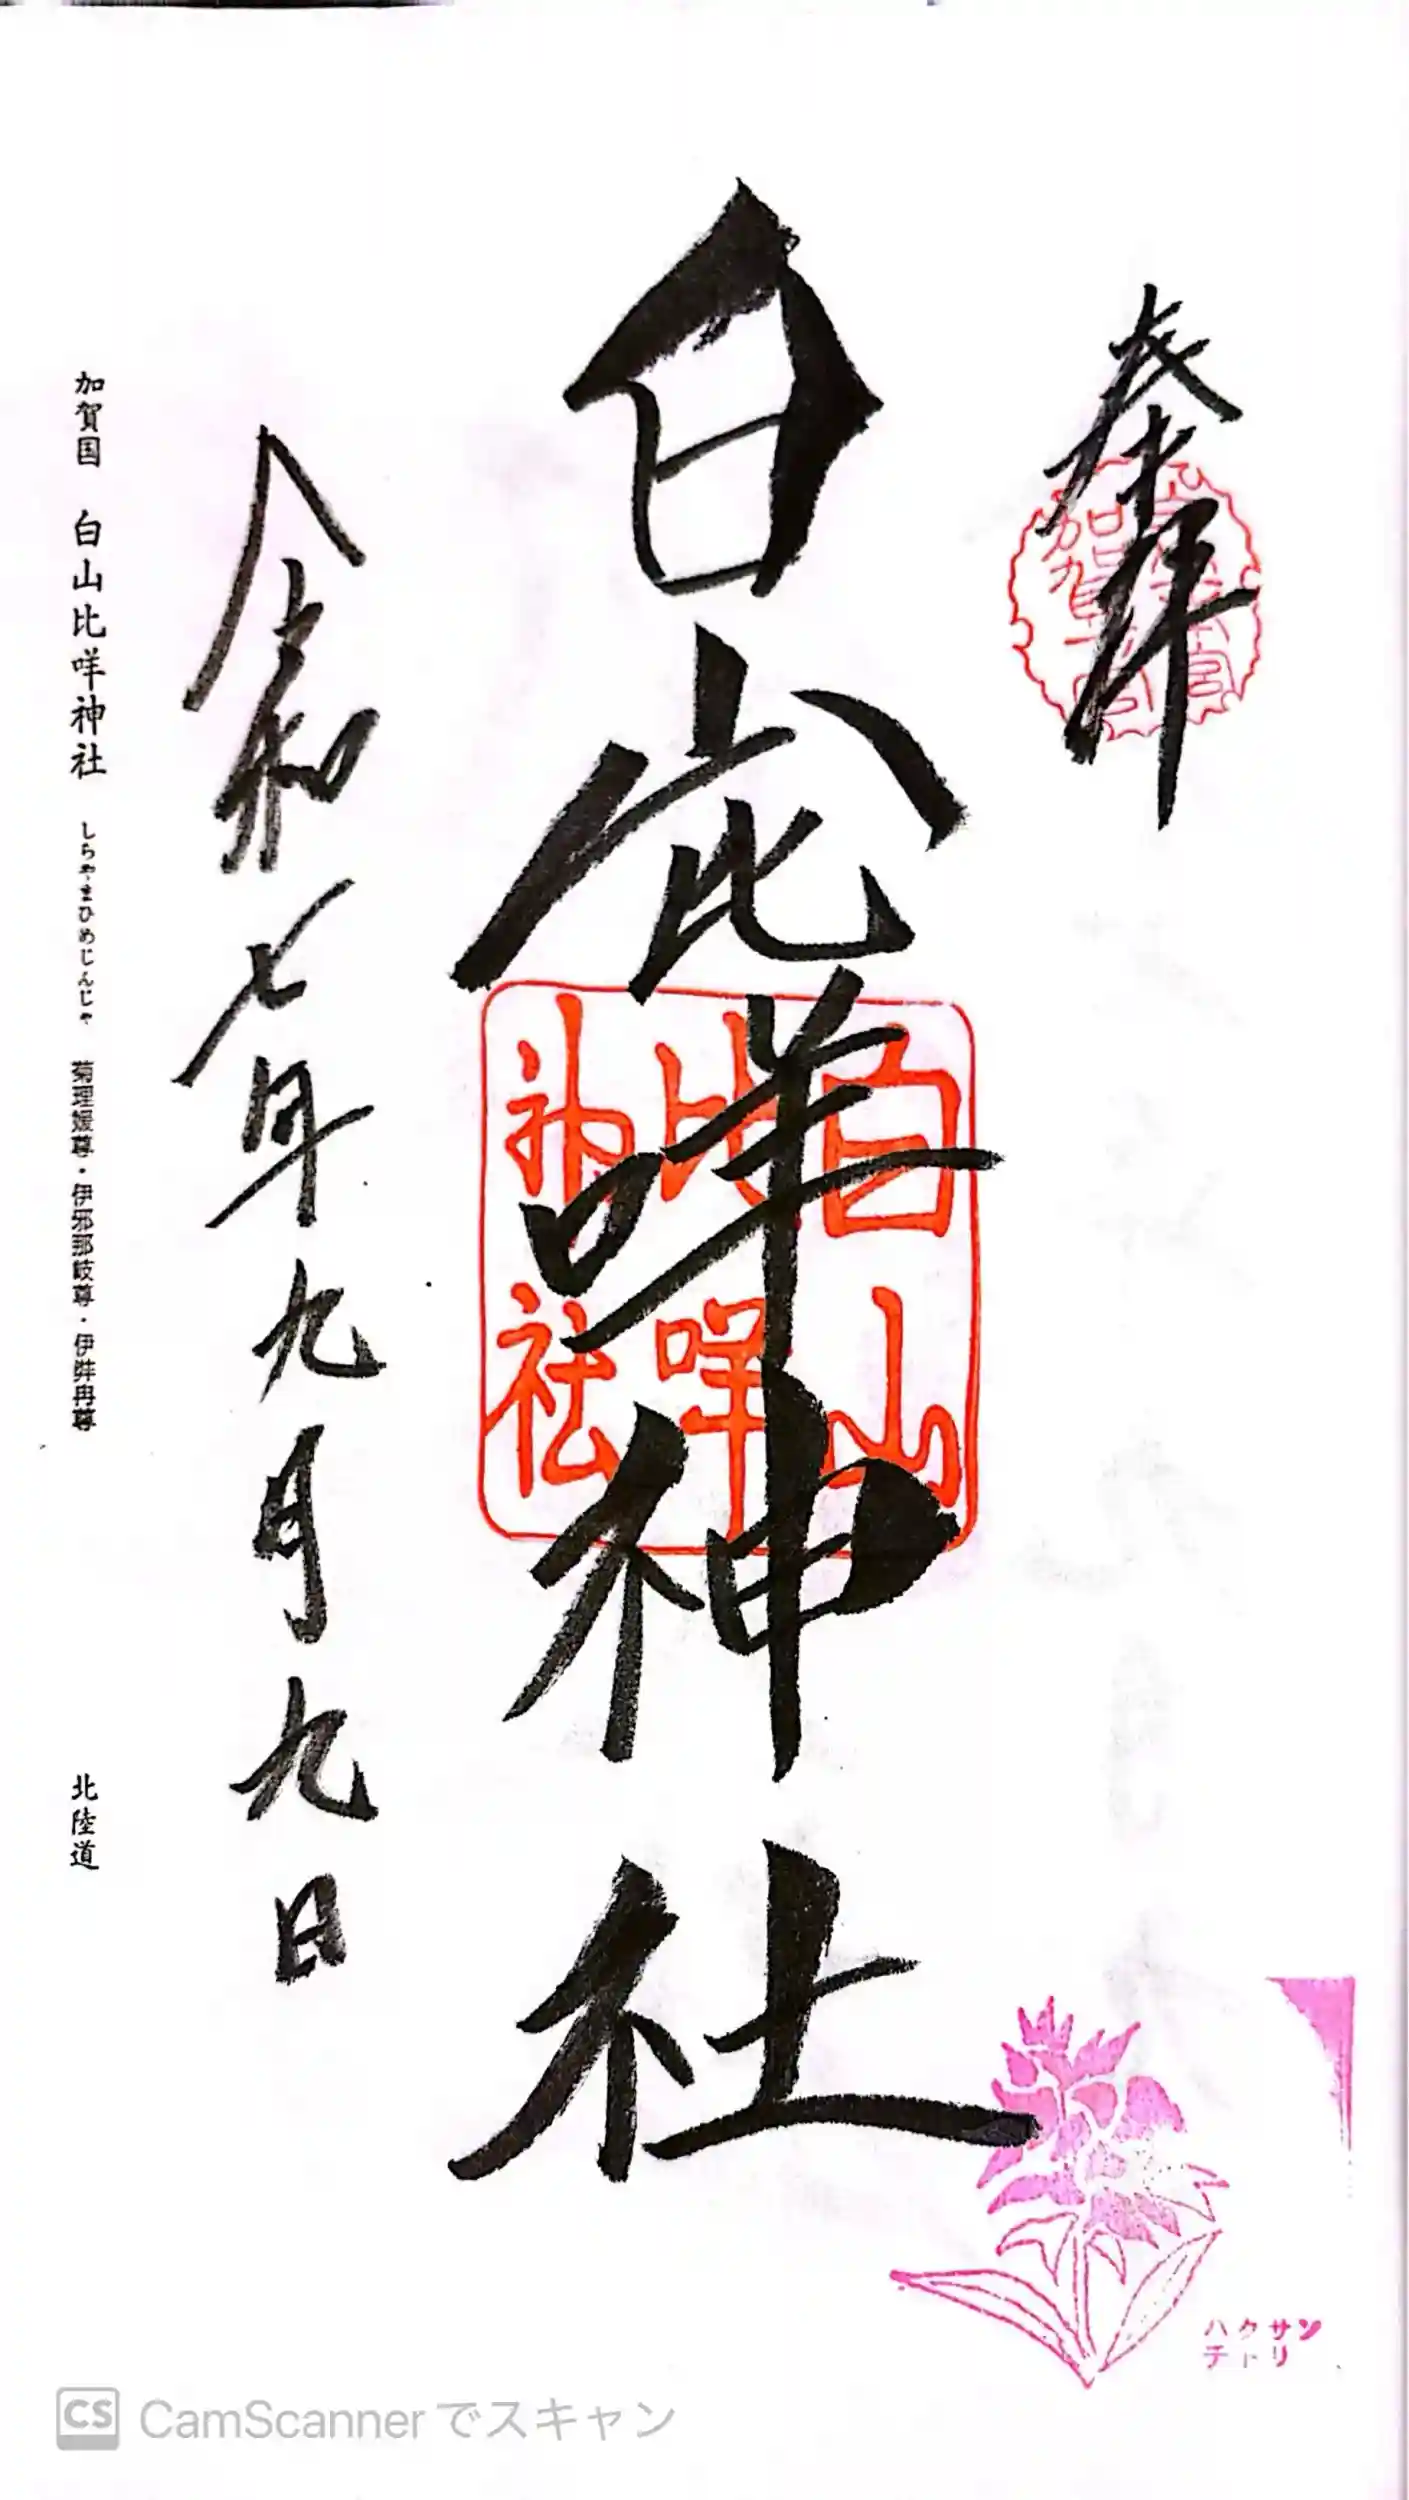 奉拝
白山比咩神社
白山比咩神社
令和七年九月九日
加賀国 白山比咩神社 しらやまひめじんじゃ 菊理媛尊・伊邪那岐尊・伊弉冉尊 北陸道
ハクサン
チドリ
CS CamScannerでスキャン